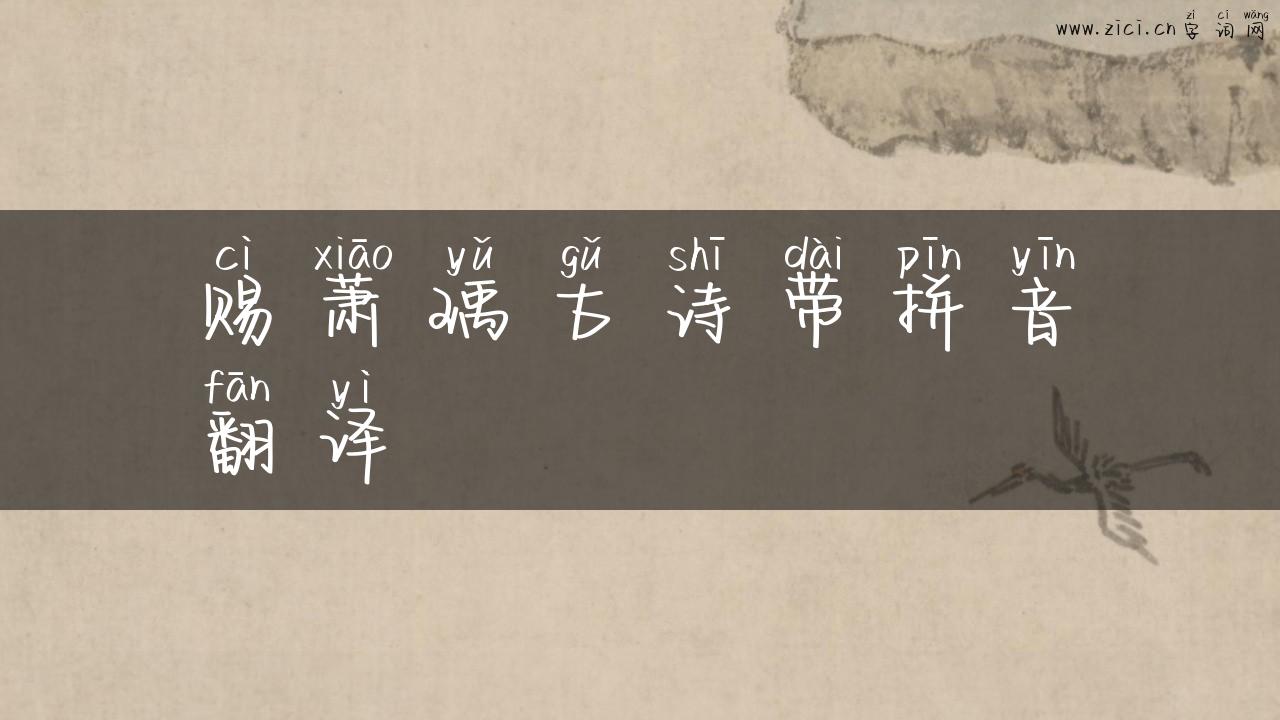 zì cí wǎng
www.zici.cn字词网
cì xiāo yǔ gǔ shī dài pīn yīn
赐萧瑀古诗带拼音
fān yì
翻译